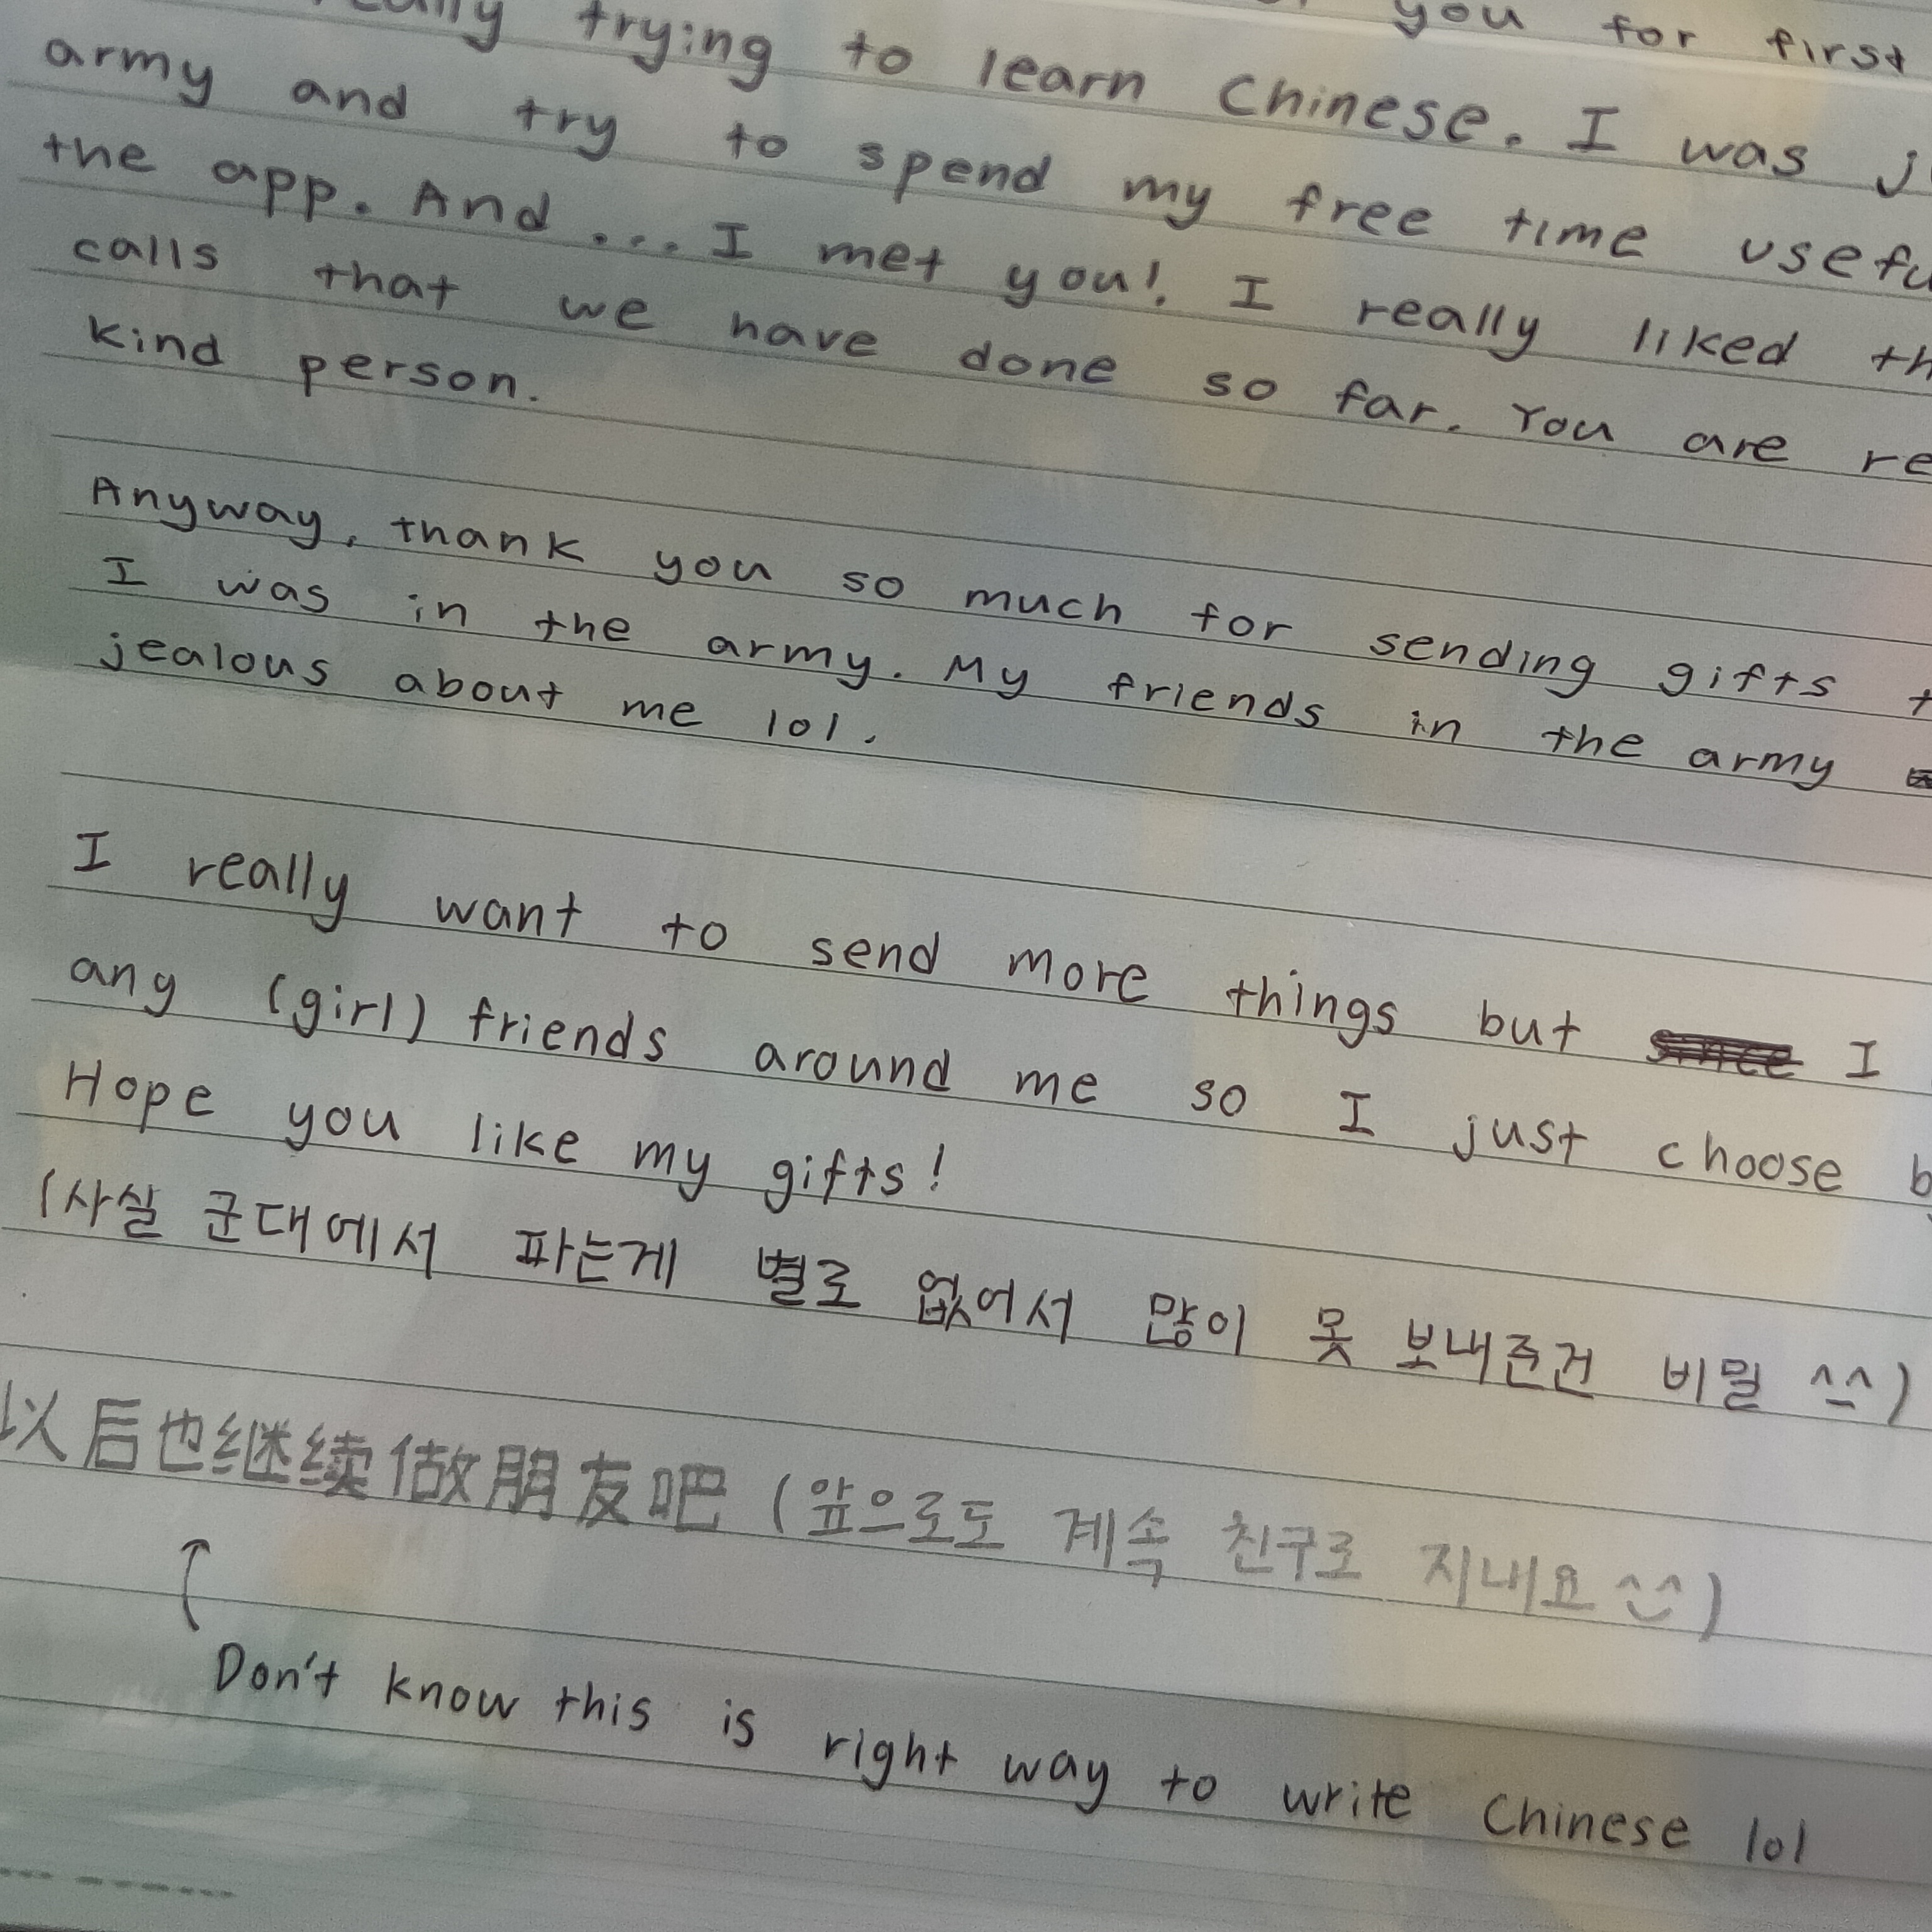 you for first
trying to learn Chinese. I was
army and try to spend my free time
the app. And ... I met you! I really liked
calls that we have done so far. You are
kind person.
Anyway, thank you so much for sending gifts
I was in the army. My friends in the army
jealous about me lol.
I really want to send more things but I
any (girl) friends around me so I just choose
Hope you like my gifts!
(사실 군대에서 파는게 별로 없어서 많이 못 보내준건 비밀 ^_^)
以后也继续做朋友吧 (앞으로도 계속 친구로 지내요 ^^)
Don't know this is right way to write Chinese lol